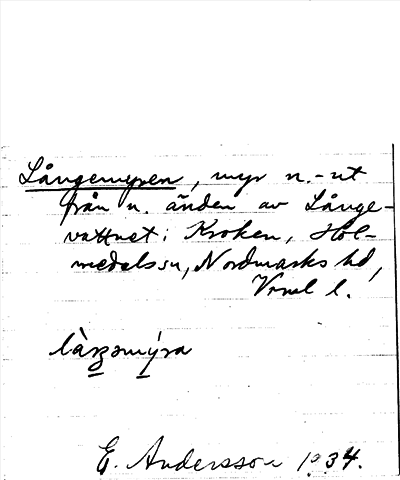 Långemyren, myr n.-ut
från n. änden av Långe-
vattnet i Kroken, Hol-
medals sn, Nordmarks hd,
Vrml l.
E. Andersson 1934.